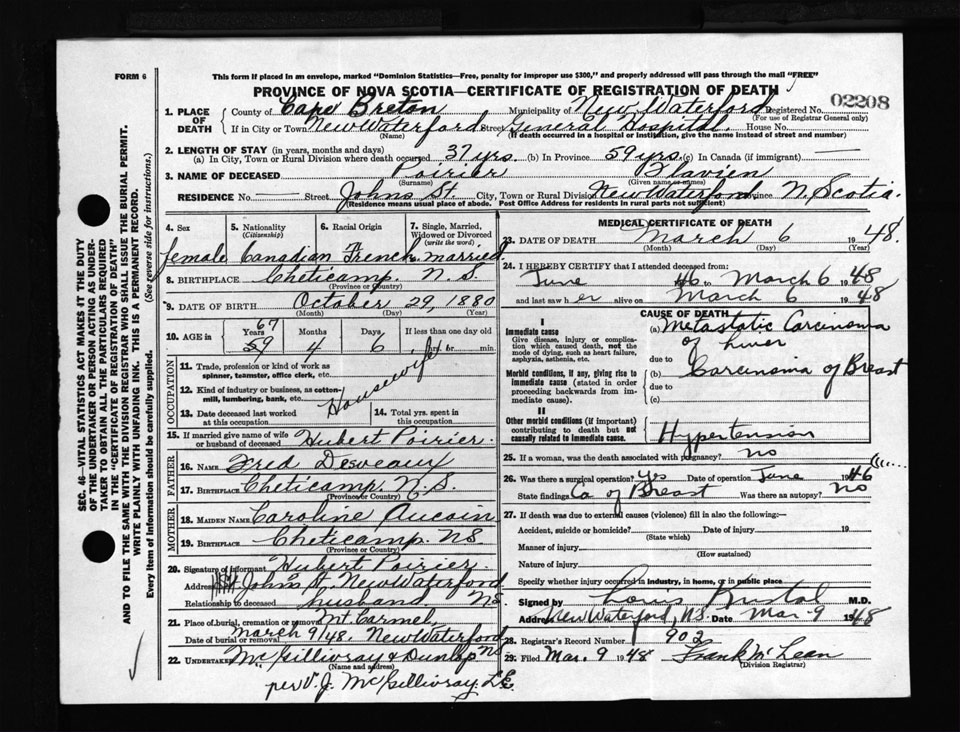 FORM 6
This form if placed in an envelope, marked "Dominion Statistics—Free, penalty for improper use $300," and properly addressed will pass through the mail "FREE"
PROVINCE OF NOVA SCOTIA—CERTIFICATE OF REGISTRATION OF DEATH
02208
1. PLACE OF DEATH County of Cape Breton Municipality of New Waterford Registered No.
(For use of Registrar General only)
If in City or Town New Waterford Street General Hospital. House No.
(Name) (If death occurred in a hospital or institution, give the name instead of street and number)
2. LENGTH OF STAY (in years, months and days)
(a) In City, Town or Rural Division where death occurred 37 yrs. (b) In Province 59 yrs. (c) In Canada (if immigrant) —
3. NAME OF DECEASED Poirier Flavien
(Surname) (Given name or names)
RESIDENCE No. Street Johns St. City, Town or Rural Division New Waterford Province N. Scotia.
(Residence means usual place of abode. Post Office Address for residents in rural parts not sufficient)
4. Sex
female
5. Nationality
(Citizenship)
Canadian
6. Racial Origin
French
7. Single, Married, Widowed or Divorced
(write the word)
married.
8. BIRTHPLACE Cheticamp. N.S.
(Province or Country)
9. DATE OF BIRTH October 29, 1880
(Month) (Day) (Year)
10. AGE in
Years Months Days If less than one day old
67
59 4 6 hrs. or min.
OCCUPATION
11. Trade, profession or kind of work as
spinner, teamster, office clerk, etc.
Housewife
12. Kind of industry or business, as cotton-
mill, lumbering, bank, etc.
13. Date deceased last worked
at this occupation
14. Total yrs. spent in
this occupation
15. If married give name of wife
or husband of deceased Hubert Poirier.
FATHER
16. Name Fred Desveaux
17. Birthplace Cheticamp. N.S.
(Province or Country)
MOTHER
18. MAIDEN NAME Caroline Aucoin
19. BIRTHPLACE Cheticamp. NS.
(Province or Country)
20. Signature of informant Hubert Poirier
Address St. John's St. New Waterford
Relationship to deceased husband NS.
21. Place of burial, cremation or removal Mt. Carmel,
Date of burial or removal March 9/48. New Waterford
22. UNDERTAKER McGillivray & Dunlop NS
(Name and address)
per V.J. McGillivray L.E.
MEDICAL CERTIFICATE OF DEATH
23. DATE OF DEATH March 6 1948.
(Month) (Day) (Year)
24. I HEREBY CERTIFY that I attended deceased from:
June 46 to March 6 1948
and last saw her alive on March 6 1948
CAUSE OF DEATH
I
Immediate cause
Give disease, injury or complica-
tion which caused death, not the
mode of dying, such as heart failure,
asphyxia, asthenia, etc.
(a) Metastatic Carcinoma
of Liver
due to
Morbid conditions, if any, giving rise to
immediate cause (stated in order
proceeding backwards from im-
mediate cause).
(b) Carcinoma of Breast
due to
(c)
II
Other morbid conditions (if important)
contributing to death but not
causally related to immediate cause.
Hypertension
25. If a woman, was the death associated with pregnancy? no
26. Was there a surgical operation? Yes Date of operation June 1946
State findings Ca of Breast Was there an autopsy? No
27. If death was due to external causes (violence) fill in also the following:—
Accident, suicide or homicide? Date of injury 19
(State which)
Manner of injury
(How sustained)
Nature of injury
Specify whether injury occurred in industry, in home, or in public place
Signed by M.D.
Address New Waterford, N.S. Date Mar. 9 1948
28. Registrar's Record Number 902
29. Filed Mar. 9 1948 Frank McLean
(Division Registrar)
SEC. 46—VITAL STATISTICS ACT MAKES IT THE DUTY
OF THE UNDERTAKER OR PERSON ACTING AS UNDER-
TAKER TO OBTAIN ALL THE PARTICULARS REQUIRED
IN THE "CERTIFICATE OF REGISTRATION OF DEATH"
AND TO FILE THE SAME WITH THE DIVISION REGISTRAR WHO SHALL ISSUE THE BURIAL PERMIT.
WRITE PLAINLY WITH UNFADING INK. THIS IS A PERMANENT RECORD.
Every item of information should be carefully supplied. (See reverse side for instructions.)